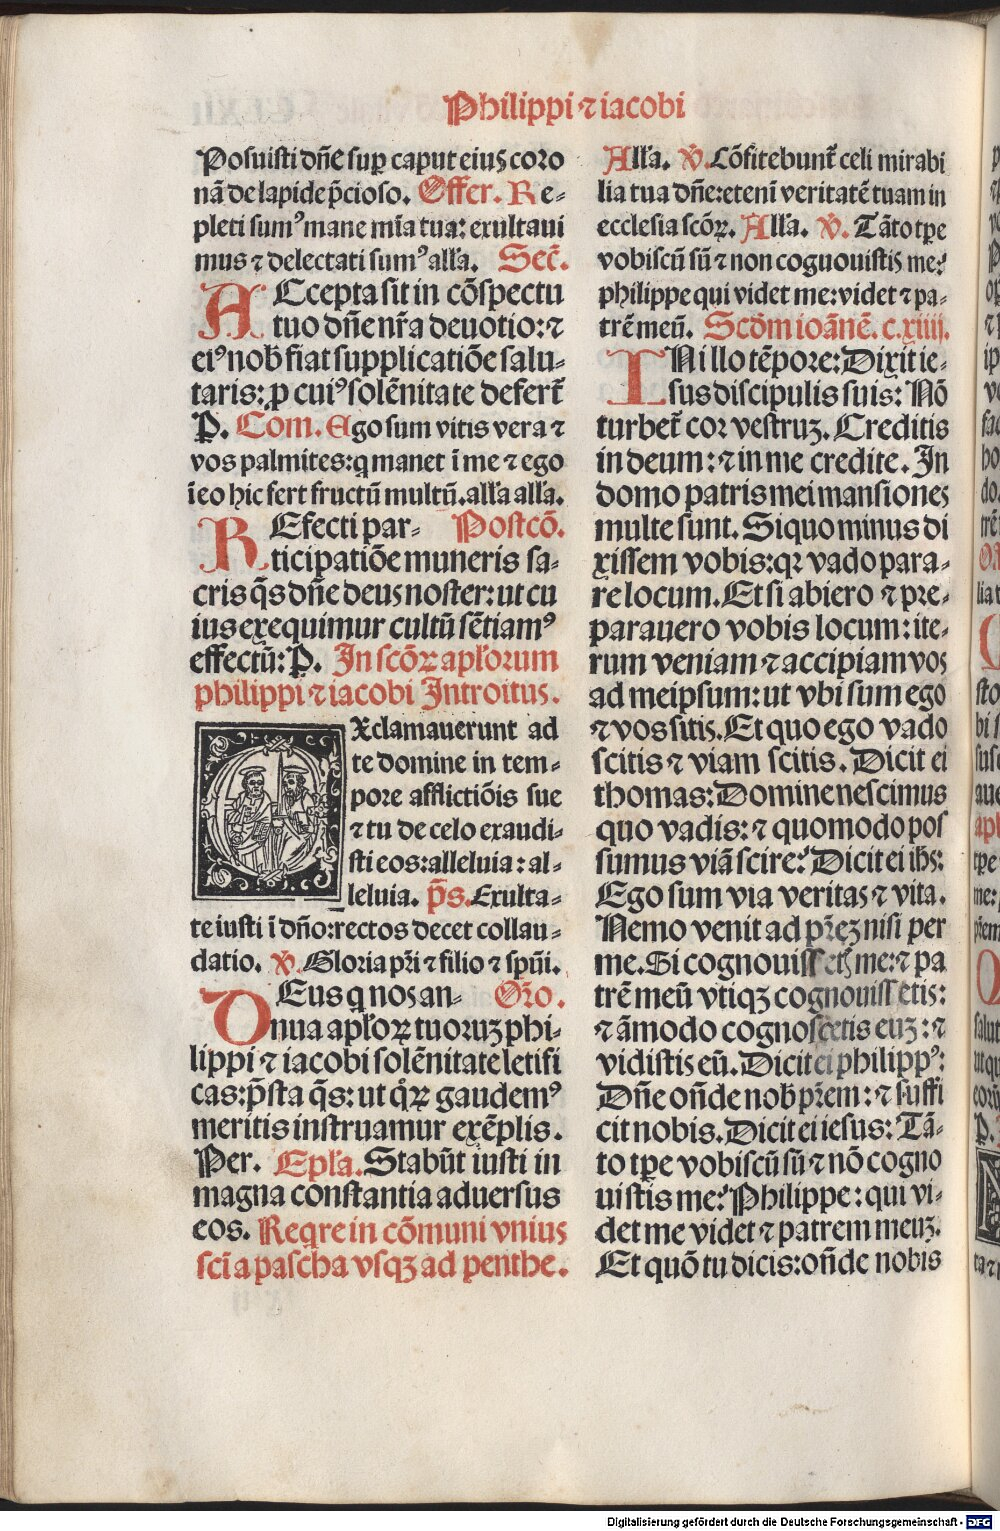 Philippi ⁊ iacobi
Posuisti dñe suꝑ caput eiuꝫ coro
nã de lapide p̃cioso. Offer. Re-
pleti sumꝰ mane mĩa tua: exultaui
mus ⁊ delectati sumꝰ all'a. Sec̃.
ACcepta sit in cõspectu
tuo dñe nr̃a deuotio: ⁊
eiꝰ nob̃ fiat supplicatiõe salu-
taris: ꝓ cuiꝰ solẽnitate defert̃
P. Com. Ego sum vitis vera ⁊
vos palmites: q manet ĩ me ⁊ ego
ĩ eo hic fert fructũ multũ. all'a all'a.
REfecti par- Postcõ.
ticipatiõe muneris sa-
cris q̃s dñe deus noster: ut cu
ius exequimur cultũ sẽtiamꝰ
effectũ: P. In scõꝝ apl'orum
philippi ⁊ iacobi Introitus.
EXclamauerunt ad
te domine in tem-
pore afflictiõis sue
⁊ tu de celo exaudi-
sti eos: alleluia: al-
leluia. p̃s. Exulta-
te iusti ĩ dño: rectos decet collau-
datio. ℣. Gloria pr̃i ⁊ filio ⁊ spũi.
DEus q nos an- Oro̴.
nua apl'oꝝ tuoruꝫ phi-
lippi ⁊ iacobi solẽnitate letifi
cas: p̃sta q̃s: ut qͦꝝ gaudemꝰ
meritis instruamur exẽplis.
Per. Epl'a. Stabũt iusti in
magna constantia aduersus
eos. Reqre in cõmuni vnius
scĩ a pascha vsqꝫ ad penthe.
All'a. ℣. Cõfitebunt̃ celi mirabi
lia tua dñe: etenĩ veritatẽ tuam in
ecclesia scõꝝ. All'a. ℣. Tãto tp̃e
vobiscũ sũ ⁊ non cognouistis me?
philippe qui videt me: videt ⁊ pa-
trẽ meũ. Scd̃m ioãnẽ. c. xiiij.
INillo tẽpore: Dixit ie-
sus discipulis suis: Nõ
turbet̃ cor vestruꝫ. Creditis
in deum: ⁊ in me credite. In
domo patris mei mansiones
multe sunt. Siquo minus di
xissem vobis: qꝛ vado para-
re locum. Et si abiero ⁊ pre-
parauero vobis locum: ite-
rum veniam ⁊ accipiam vos
ad meipsum: ut vbi sum ego
⁊ vos sitis. Et quo ego vado
scitis ⁊ viam scitis. Dicit ei
thomas: Domine nescimus
quo vadis: ⁊ quomodo pos
sumus viã scire? Dicit ei ih̃s:
Ego sum via veritas ⁊ vita.
Nemo venit ad pr̃eꝫ nisi per
me. Si cognouissetꝭ me: ⁊ pa
trẽ meũ vtiqꝫ cognouissetis:
⁊ ãmodo cognoscetis euꝫ: ⁊
vidistis eũ. Dicit ei philippꝰ:
Dñe oñde nob̃ pr̃em: ⁊ suffi
cit nobis. Dicit ei iesus: Tã-
to tp̃e vobiscũ sũ ⁊ nõ cogno
uistis me? Philippe: qui vi-
det me videt ⁊ patrem meuꝫ.
Et quõ tu dicis: oñde nobis
Digitalisierung gefördert durch die Deutsche Forschungsgemeinschaft - DFG